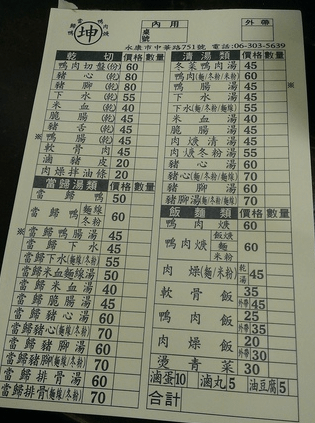 當歸鴨
坤
鴨肉焿
內用
外帶
桌號
永康市中華路751號 電話:06-303-5639
乾切 價格 數量
鴨肉切盤(份) 60
豬心(乾) 80
豬腳(乾) 80
下水(乾) 55
米血(乾) 40
脆腸(乾) 45
豬舌(乾) 45
鴨腸(乾) 45
軟骨肉 45
滷豬皮 20
肉燥拌油條 20
當歸湯類 價格 數量
當歸鴨 50
當歸鴨 麵線 冬粉 60
當歸鴨腸湯 45
當歸下水 45
當歸下水(麵線/冬粉) 55
當歸米血麵線湯 50
當歸米血湯 40
當歸脆腸湯 45
當歸豬心湯 60
當歸豬心(麵線/冬粉) 70
當歸豬腳湯 60
當歸豬腳(麵線/冬粉) 70
當歸排骨湯 60
當歸排骨(麵線/冬粉) 70
清湯類 價格 數量
冬菜鴨肉湯 45
鴨肉(麵/冬粉/米粉) 60
鴨腸湯 45
下水湯 45
下水(麵/冬粉/米粉) 55
米血湯 40
脆腸湯 45
肉焿清湯 45
肉焿冬粉湯 55
豬心湯 60
豬心(麵/冬粉/米粉) 70
豬腳湯 60
豬腳湯(麵/冬粉/米粉) 70
飯麵類 價格 數量
鴨肉焿 60
鴨肉焿 麵 米粉 60
肉燥(麵/米粉) 乾 湯 45
軟骨飯 35 外帶45
鴨肉飯 25 外帶35
肉燥飯 20 外帶30
燙青菜 30
滷蛋10 滷丸5 油豆腐5
合計